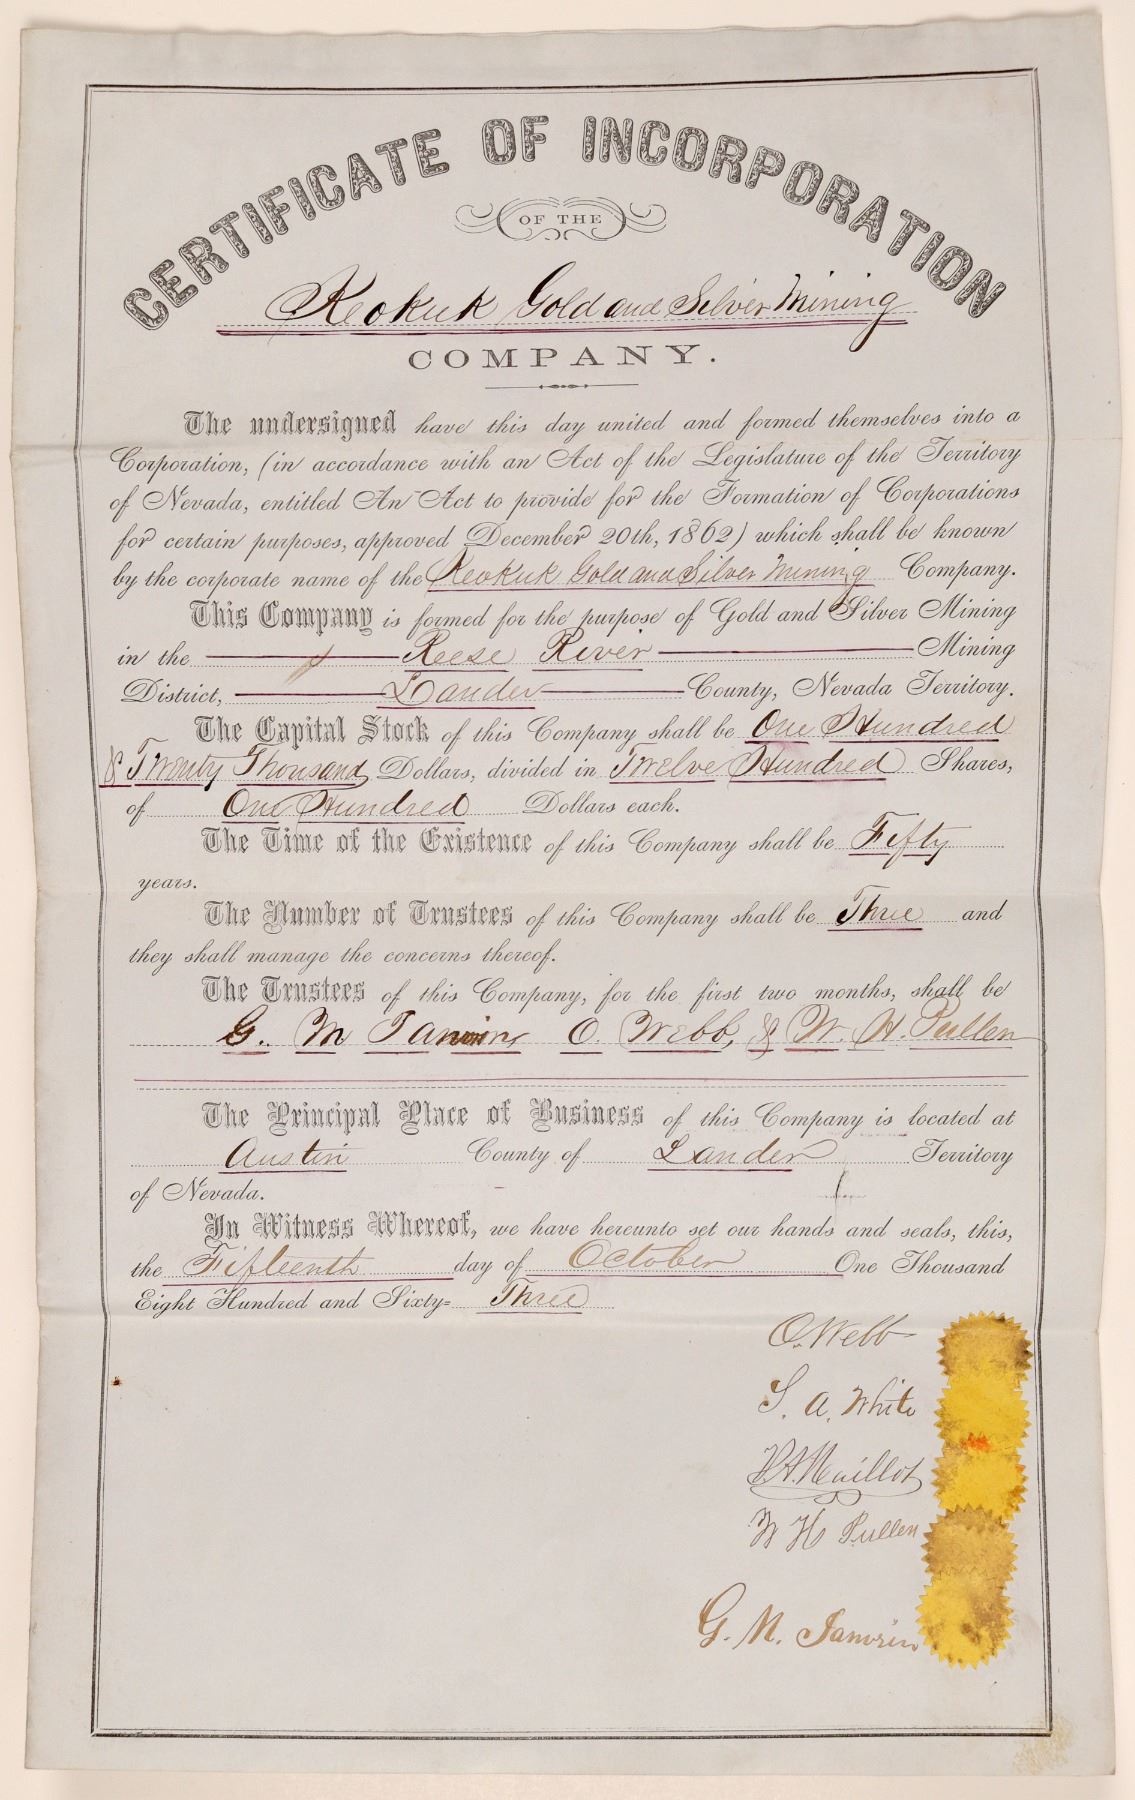 CERTIFICATE OF INCORPORATION
OF THE
Keokuk Gold and Silver Mining
COMPANY.
The undersigned have this day united and formed themselves into a
Corporation, (in accordance with an Act of the Legislature of the Territory
of Nevada, entitled An Act to provide for the Formation of Corporations
for certain purposes, approved December 20th, 1862) which shall be known
by the corporate name of the Keokuk Gold and Silver Mining Company.
This Company is formed for the purpose of Gold and Silver Mining
in the Reese River Mining
District, Lander County, Nevada Territory.
The Capital Stock of this Company shall be One Hundred
& Twenty Thousand Dollars, divided in Twelve Hundred Shares,
of One Hundred Dollars each.
The Time of the Existence of this Company shall be Fifty
years.
The Number of Trustees of this Company shall be Three and
they shall manage the concerns thereof.
The Trustees of this Company, for the first two months, shall be
G. M Janvrin O. Webb, & W. H. Pullen
The Principal Place of Business of this Company is located at
Austin County of Lander Territory
of Nevada.
In Witness Whereof, we have hereunto set our hands and seals, this,
the Fifteenth day of October One Thousand
Eight Hundred and Sixty= Three
O. Webb
S. A. White
W H Pullen
G. M. Janvrin